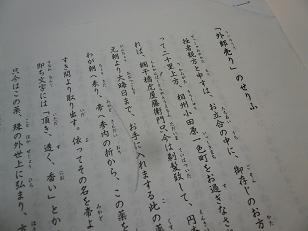 「外郎売り」のせりふ
拙者親方と申すは、お立合の中に、御存じのお方
って二十里上方、相州小田原一色町をお過ぎなさ
れば、欄干橋虎屋藤衛門只今は剃髪致して、円
元朝より大晦日まで、お手に入れまする此の薬
わが朝へ来り、帝へ参内の折から、この薬を
すき間より取り出す。依ってその名を帝よ
即ち文字には「頂き、透く、香い」とか
只今はこの薬、殊の外世上に弘まり、